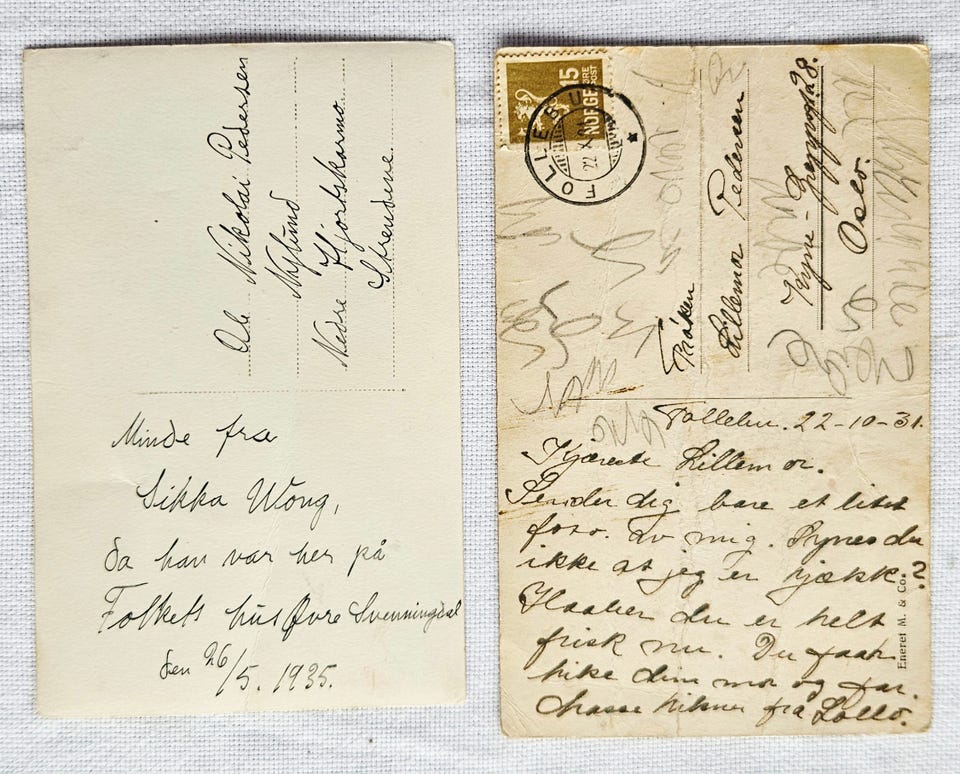 Ole Nikolai Pedersen
Nylund
Nedre Hjortskarmo
Strendene
Minde fra
Sikka Wong,
da han var her på
Folkets hus Øvre Svenningdal
den 26/5. 1935.
NORGE 15 ØRE POST
FOLLEBU
22 X 31
Frøken
Lillemor Pedersen
28.
Oslo.
Follebu. 22-10-31.
Kjæreste Lillemor.
Sender dig bare et litet
foto. av mig. Synes du
ikke at jeg er kjækk?
Haaber du er helt
frisk nu. Du faar
hilse din mor og far.
Masse hilsner fra Lollo.
Eneret M. & Co.